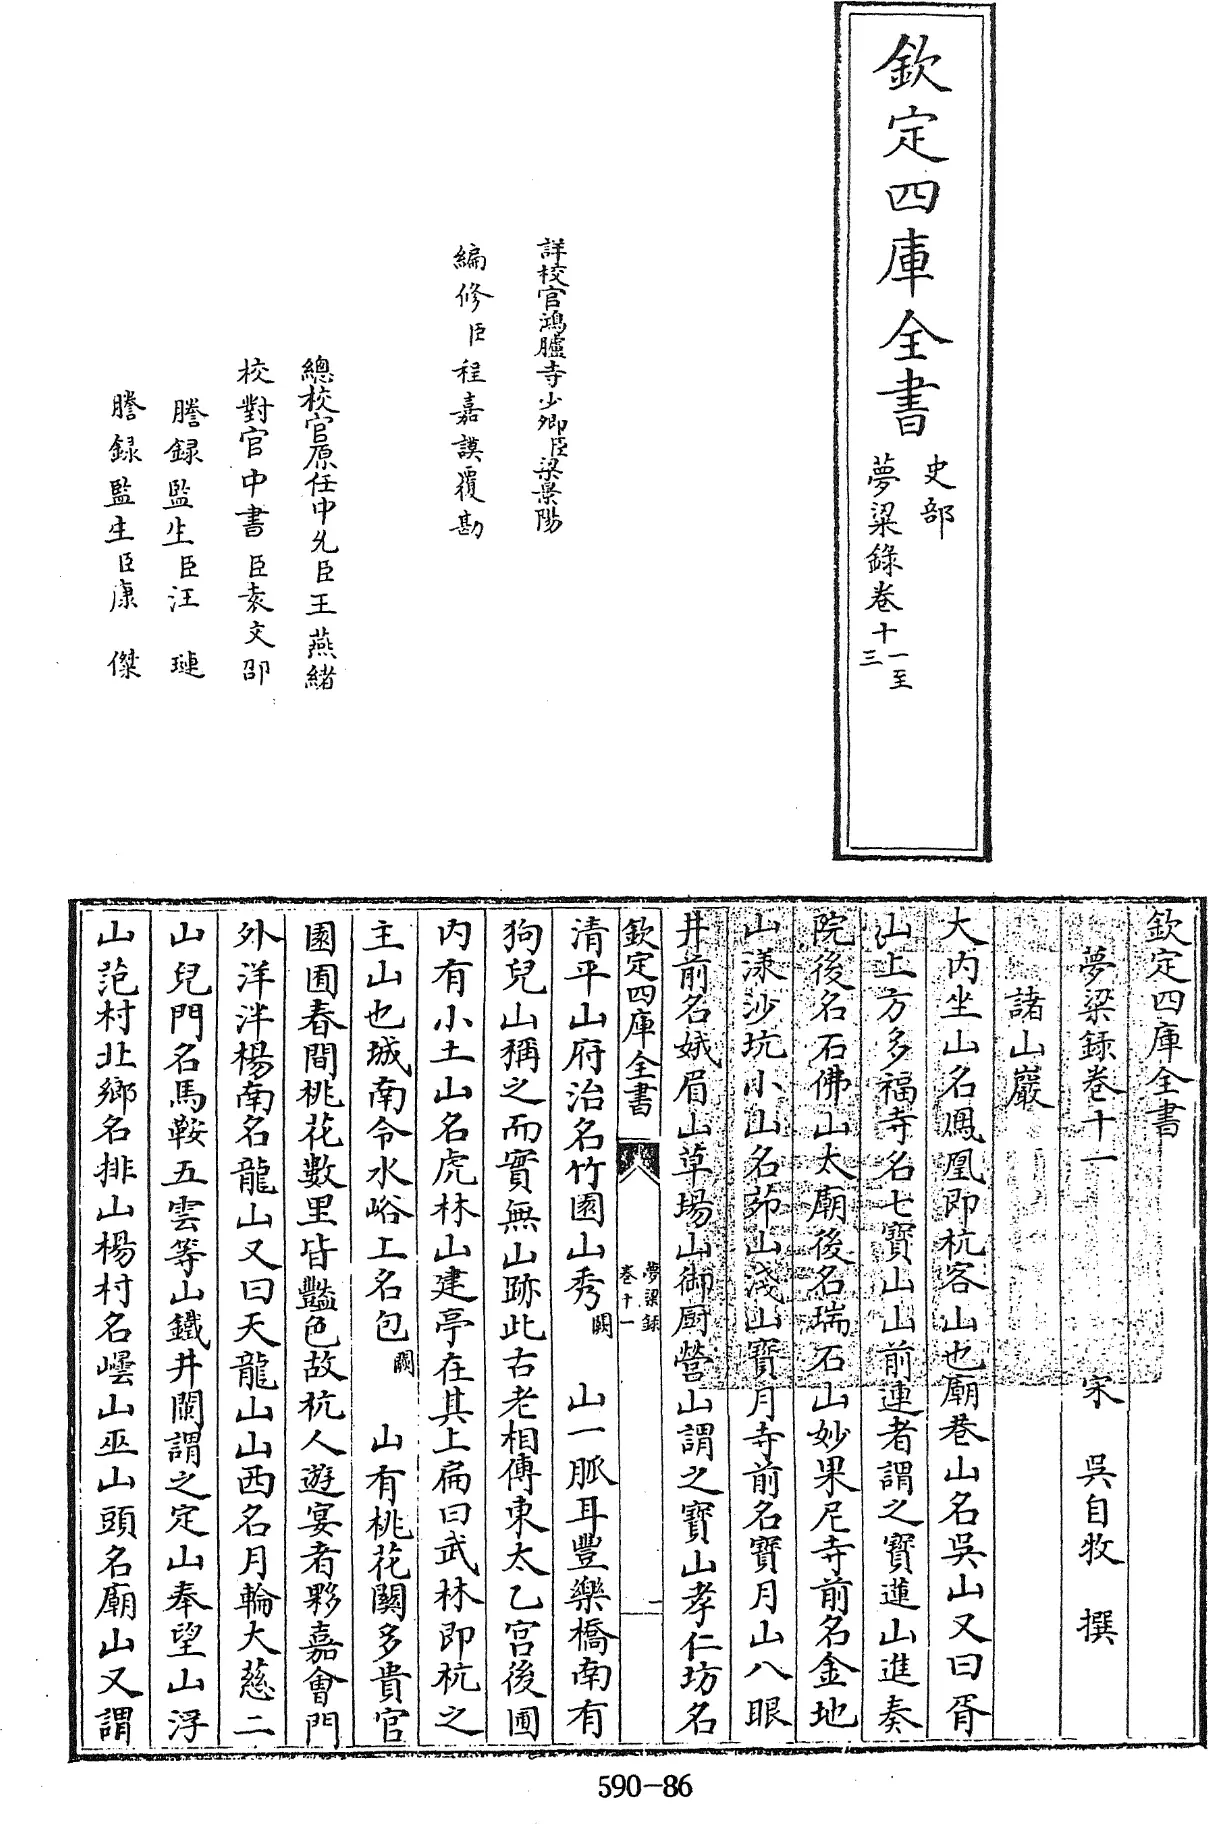 欽定四庫全書
史部
夢粱錄卷十一至
三
詳校官鴻臚寺少卿臣梁景陽
編修臣程嘉謨覆勘
總校官原任中允臣王燕緒
校對官中書臣袁文邵
謄録監生臣汪璉
謄録監生臣康傑
欽定四庫全書
夢粱録卷十一
宋 吳自牧 撰
諸山巖
大内坐山名鳳凰即杭客山也廟巷山名吳山又曰胥
山上方多福寺名七寳山山前連者謂之寳蓮山進奏
院後名石佛山太廟後名瑞石山妙果尼寺前名金地
山漾沙坑小山名茆山淺山寳月寺前名寳月山八眼
井前名娥眉山草場山御厨營山謂之寳山孝仁坊名
欽定四庫全書
夢粱録
卷十一
二
清平山府治名竹園山秀闕 山一脈耳豐樂橋南有
狗兒山稱之而實無山跡此古老相傳東太乙宮後圃
内有小土山名虎林山建亭在其上扁曰武林即杭之
主山也城南令水峪上名包闕 山有桃花闗多貴官
園囿春間桃花數里皆豔色故杭人遊宴者夥嘉會門
外洋泮楊南名龍山又曰天龍山山西名月輪大慈二
山兒門名馬鞍五雲等山鐵井闌謂之定山奉望山浮
山范村北鄉名排山楊村名㠠山巫山頭名廟山又謂
590-86